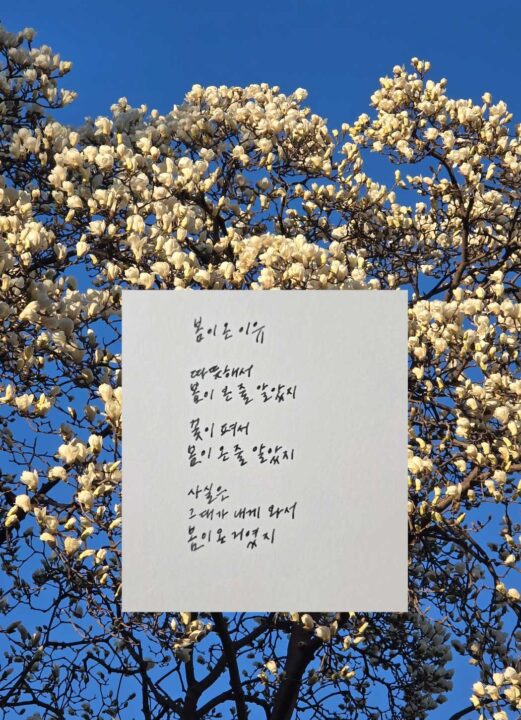 봄이 온 이유
따뜻해서
봄이 온 줄 알았지
꽃이 펴서
봄이 온 줄 알았지
사실은
그대가 내게 와서
봄이 온 거였지